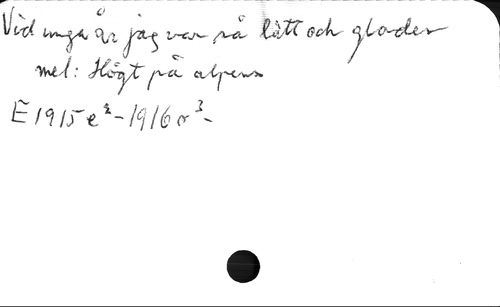 Vid unga år jag var så lätt och glader
mel: Högt på alpens
E 1915 e² - 1916 o³ -